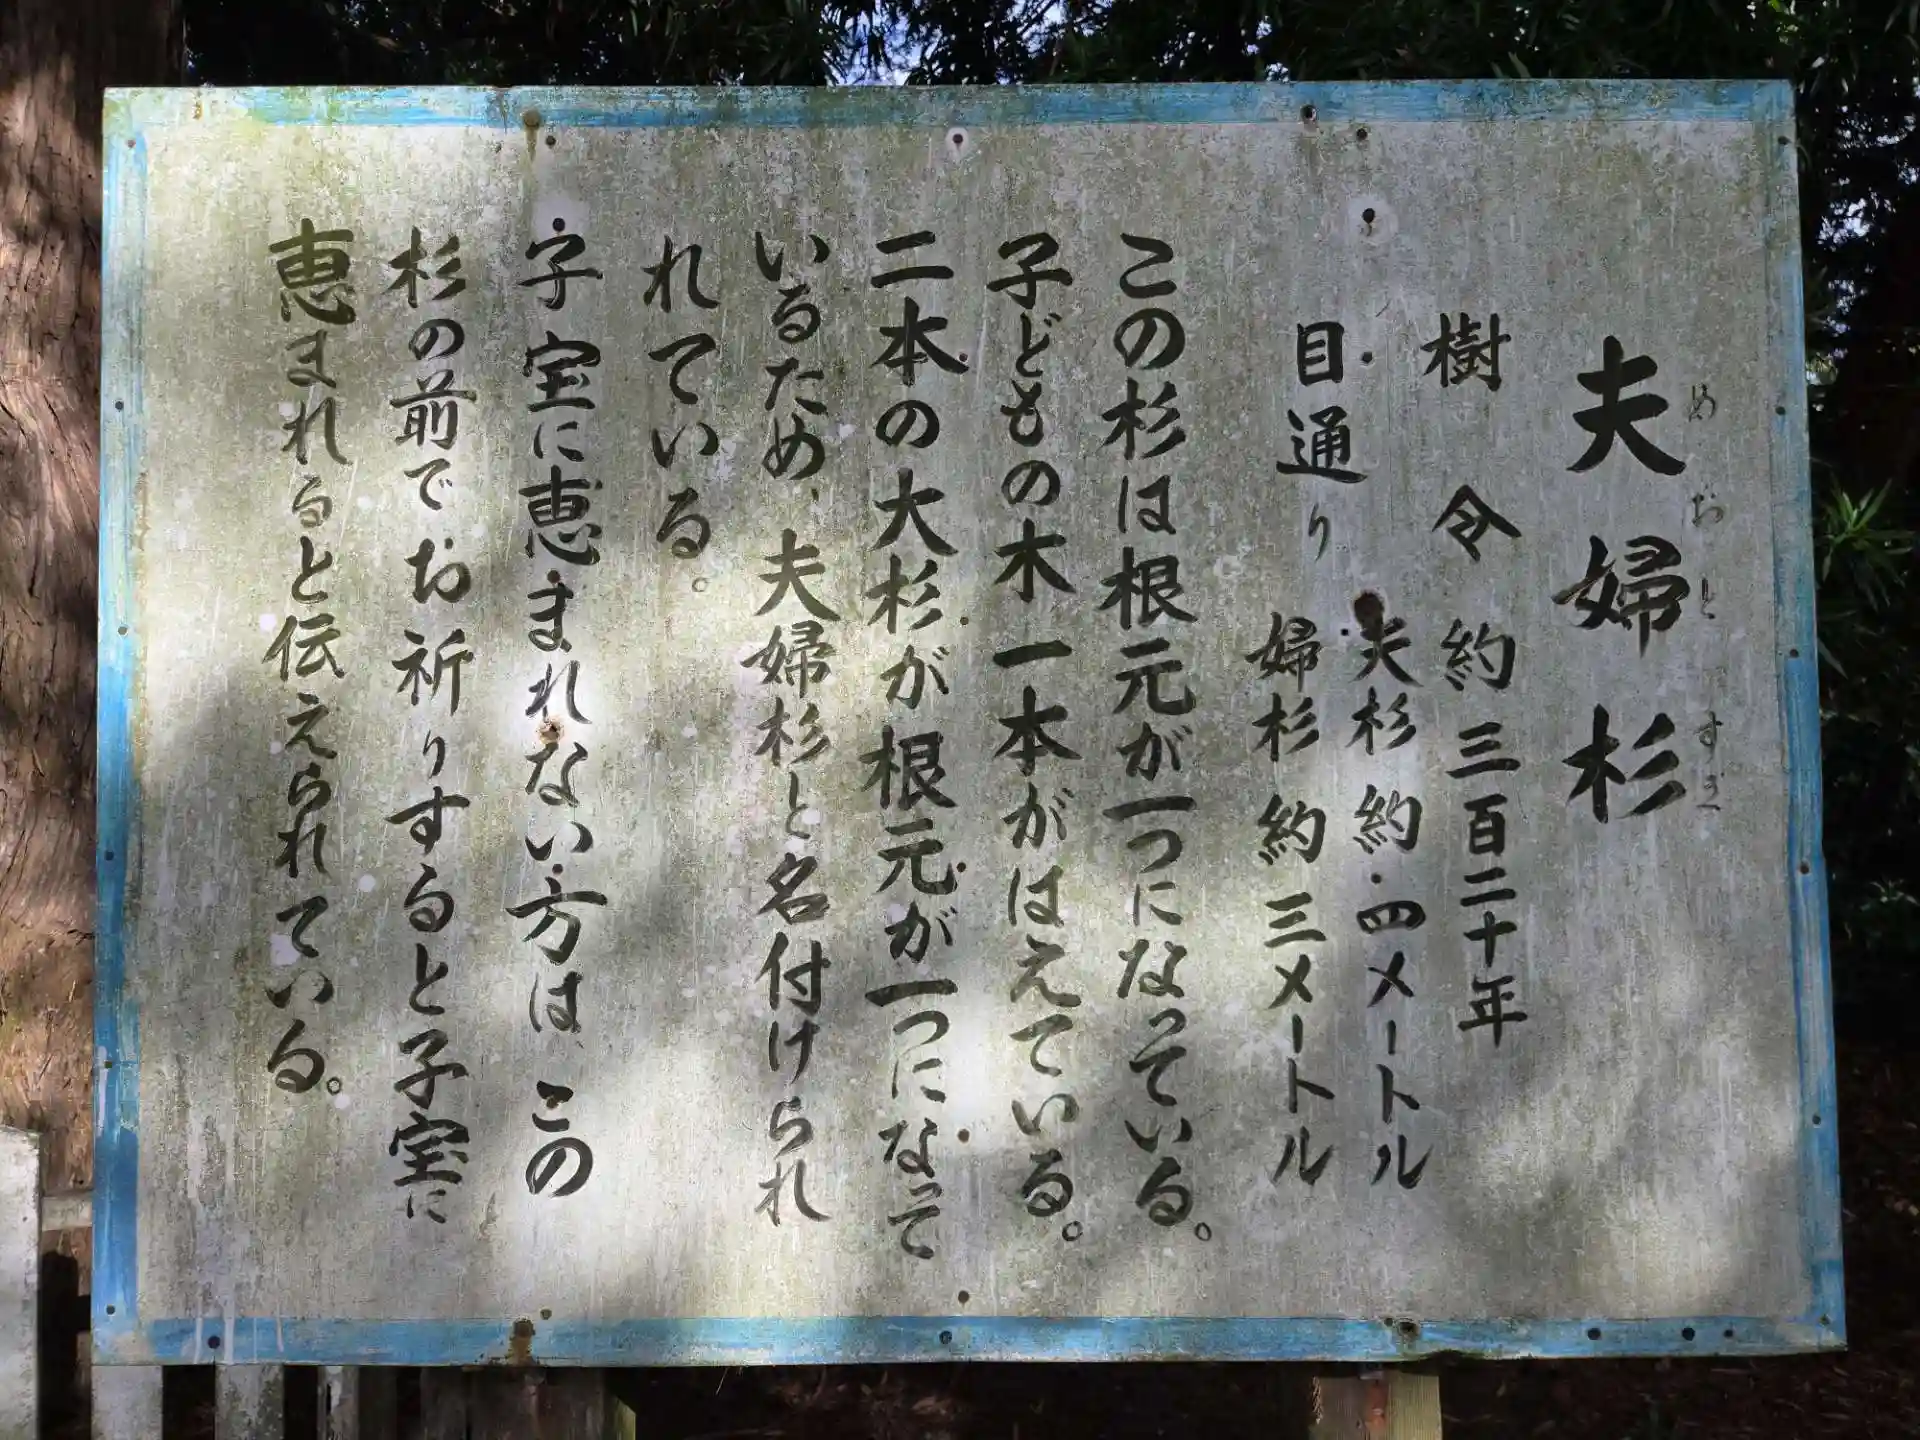 夫婦杉
めおとすぎ
樹令 約三百二十年
目通り 夫杉 約四メートル
婦杉 約三メートル
この杉は根元が一つになっている。
子どもの木一本がはえている。
二本の大杉が根元が一つになって
いるため、夫婦杉と名付けられ
れている。
子宝に恵まれない方は、この
杉の前でお祈りすると子宝に
恵まれると伝えられている。